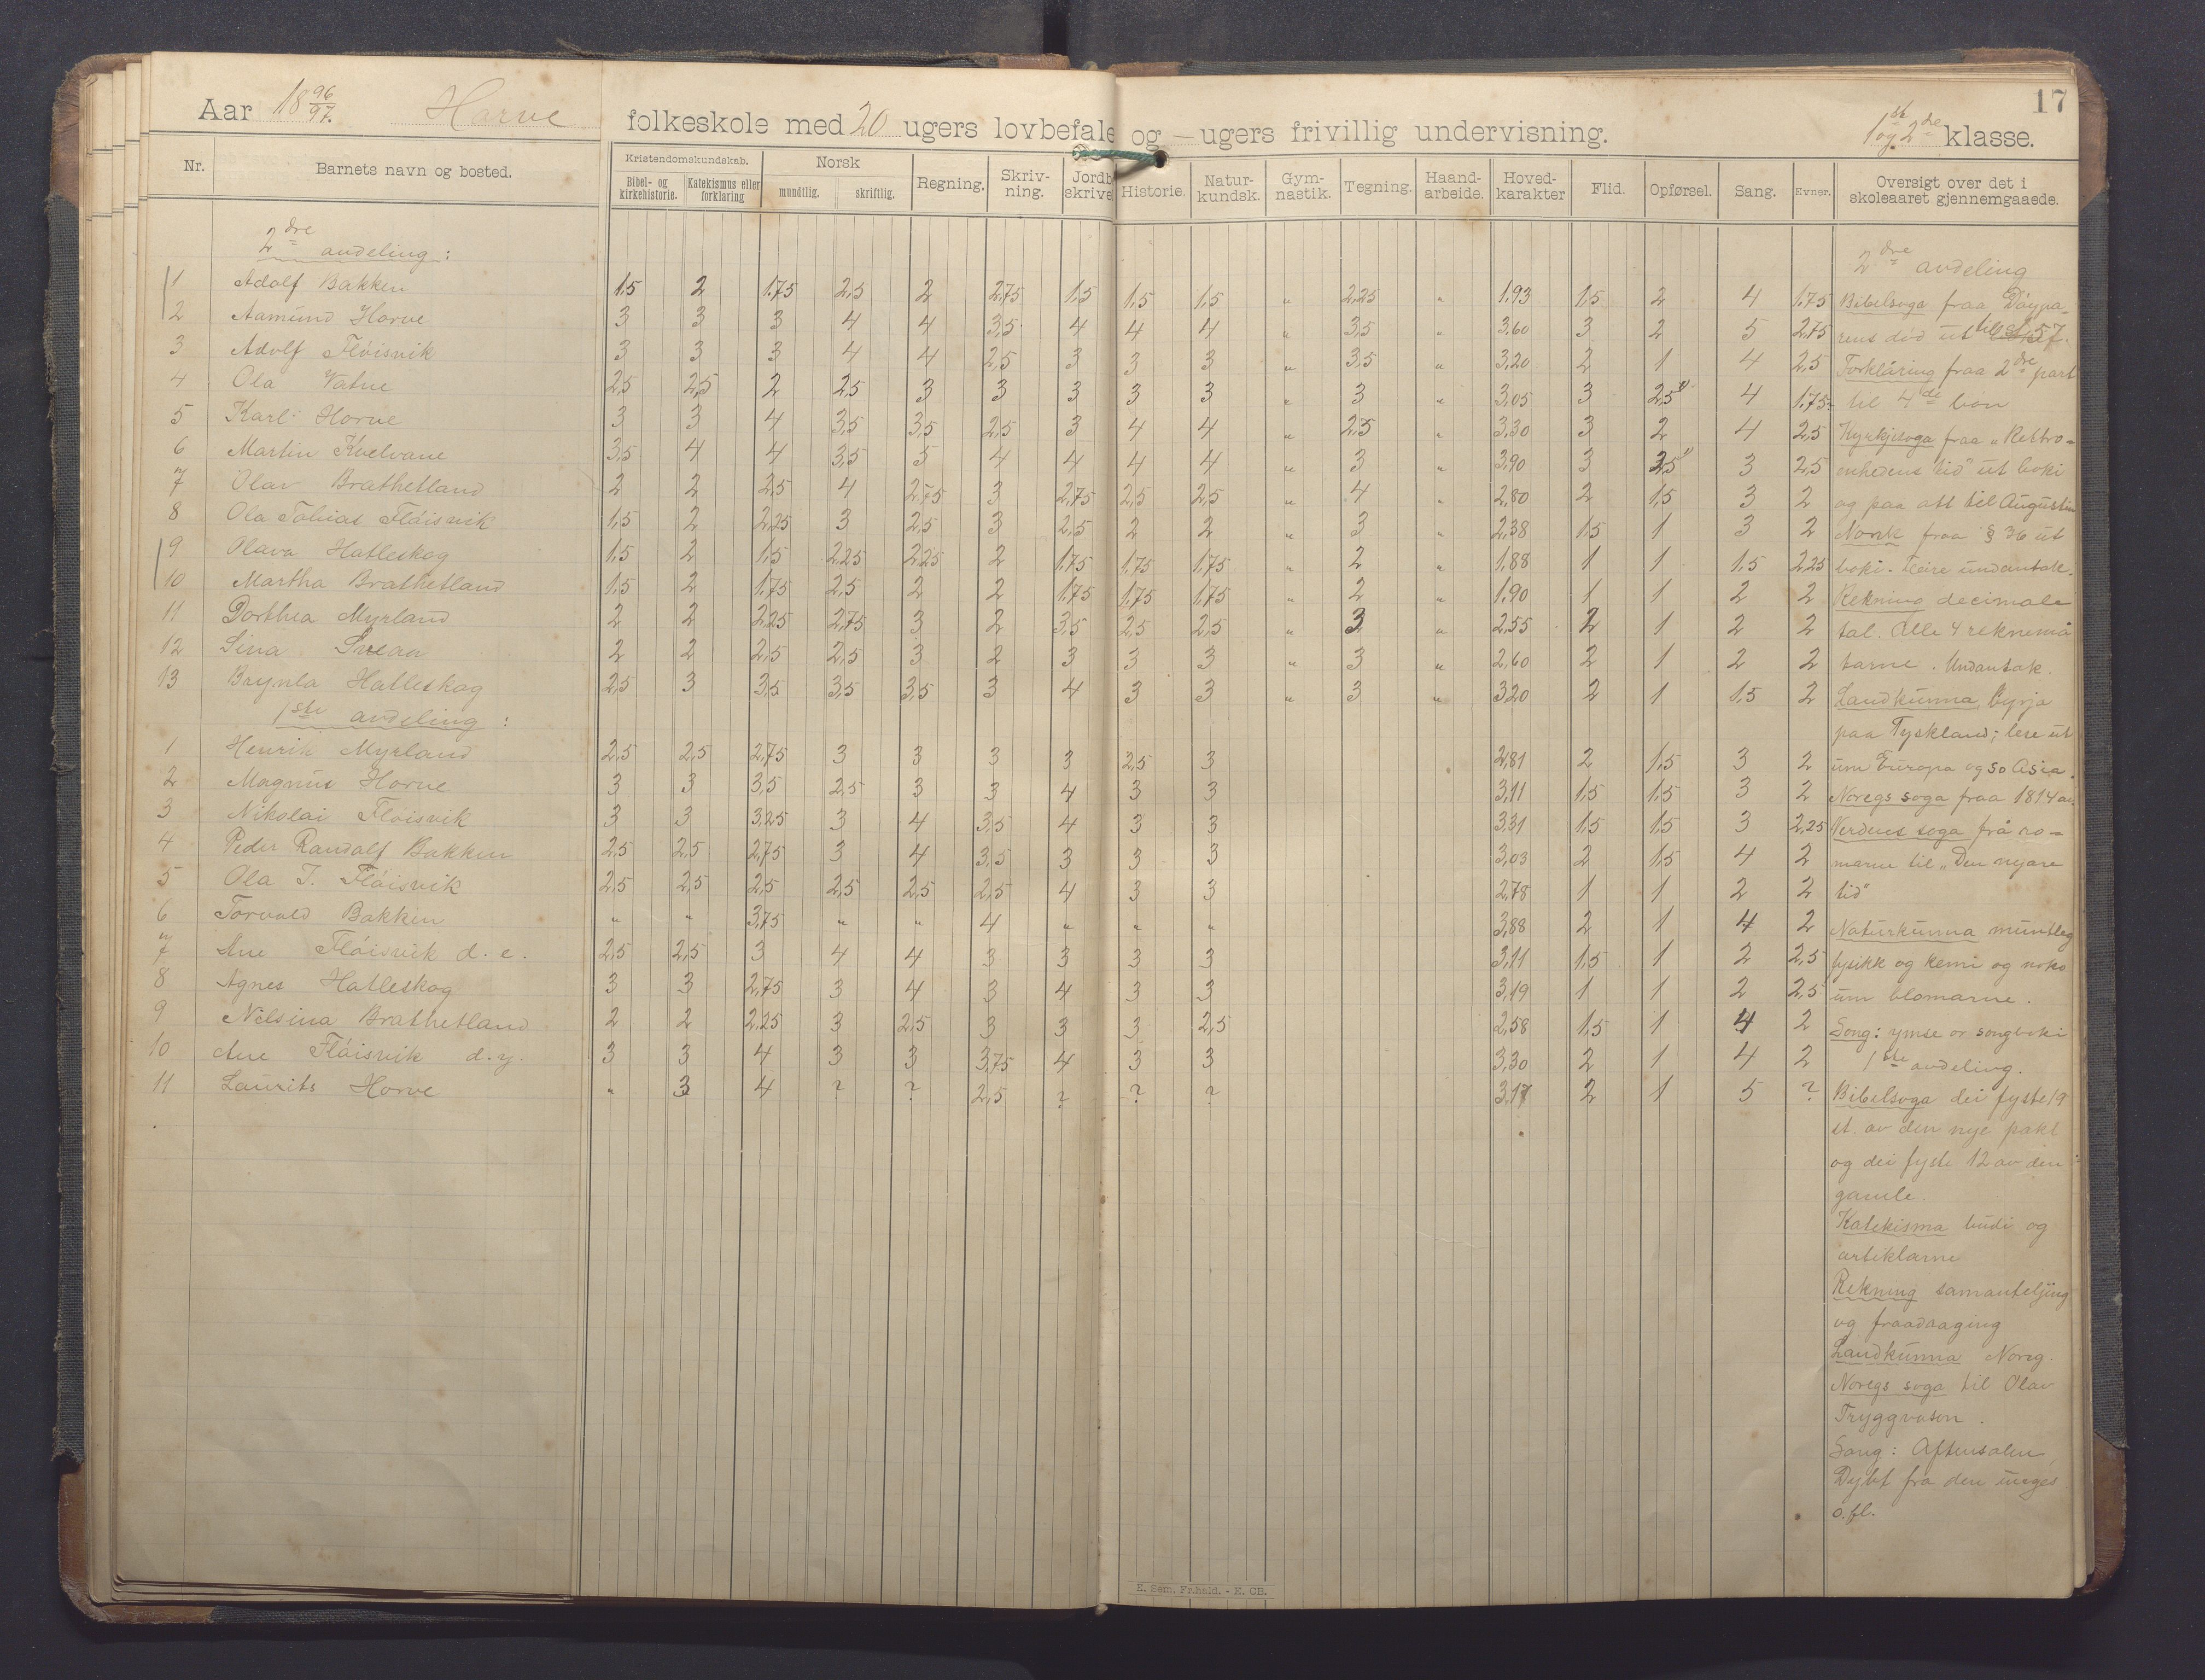 Aar 18 96/97. Horve folkeskole med 20 ugers lovbefale og — ugers frivillig undervisning. 1ste og 2de klasse.
17
Nr. Barnets navn og bosted. Kristendomskundskab. Bibel- og kirkehistorie. Katekismus eller forklaring Norsk mundtlig. skriftlig. Regning. Skriv-ning. Jordb skrive Historie. Natur-kundsk. Gym-nastik. Tegning. Haand-arbeide. Hoved-karakter Flid. Opførsel. Sang. Evner. Oversigt over det i skoleaaret gjennemgaaede.
2dre avdeling:
1 Adolf Bakken 1,5 2 1,75 2,5 2 2,75 1,5 1,5 1,5 „ 2,25 „ 1,93 1,5 2 4 1,75
2 Aamund Horve 3 3 3 4 4 3,5 4 4 4 „ 3,5 „ 3,60 3 2 5 2,75
3 Adolf Flöisvik 3 3 3 4 4 2,5 3 3 3 „ 3,5 „ 3,20 2 1 4 2,5
4 Ola Vatne 2,5 2,5 2 2,5 3 3 3 3 3 „ 3 „ 3,05 3 2,5 4 1,75
5 Karl Horve 3 3 4 3,5 3,5 2,5 3 4 4 „ 2,5 „ 3,30 3 2 4 2,5
6 Martin Kvelvane 3,5 4 4 3,5 5 4 4 4 4 „ 3 „ 3,90 3 3,5 3 2,5
7 Olav Brathetland 2 2 2,5 4 2,75 3 2,75 2,5 2,5 „ 4 „ 2,80 2 1,5 3 2
8 Ola Tobias Flöisvik 1,5 2 2,25 3 2,5 3 2,5 2 2 „ 3 „ 2,38 1,5 1 3 2
9 Olava Hatleskog 1,5 2 1,5 2,25 2,25 2 1,75 1,75 1,75 „ 2 „ 1,88 1 1 1,5 2,25
10 Martha Brathetland 1,5 2 1,75 2,5 2 2 1,75 1,75 1,75 „ 2 „ 1,90 1 1 2 2
11 Dorthea Myrland 2 2 2,25 2,75 3 2 3,5 2,5 2,5 „ 3 „ 2,55 2 1 2 2
12 Sina 2 2 2,5 2,5 3 2 3 3 3 „ 3 „ 2,60 2 1 2 2
13 Brynla Hatleskog 2,5 3 3,5 3,5 3,5 3 4 3 3 „ 3 „ 3,20 2 1 1,5 2
1ste avdeling:
1 Henrik Myrland 2,5 2,5 2,75 3 3 3 3 2,5 3 2,81 2 1,5 3 2
2 Magnus Horve 3 3 3,5 2,5 3 3 4 3 3 3,11 1,5 1,5 3 2
3 Nikolai Flöisvik 3 3 3,25 3 4 3,5 4 3 3 3,31 1,5 1,5 3 2,25
4 Peder Randolf Bakken 2,5 2,5 2,75 3 4 3,5 3 3 3 3,03 2 1,5 4 2
5 Ola T. Flöisvik 2,5 2,5 2,5 2,5 2,5 2,5 4 3 3 2,78 1 1 2 2
6 Torvald Bakken „ „ 3,75 „ „ 4 „ „ „ 3,88 2 1 4 2
7 Ane Flöisvik d. e. 2,5 2,5 3 4 4 3 3 3 3 3,11 1,5 1 2 2,5
8 Agnes Hatleskog 3 3 2,75 3 4 3 4 3 3 3,19 1 1 2 2,5
9 Nelsina Brathetland 2 2 2,25 3 2,5 3 3 3 2,5 2,58 1,5 1 4 2
10 Ane Flöisvik d. y. 3 3 4 3 3 3,75 4 3 3 3,30 2 1 4 2
11 Laurits Horve „ 3 4 ? ? 2,5 ? ? ? 3,17 2 1 5 ?
2dre avdeling
Bibelsoga fraa Döypa-
rens död ut til st. 57.
Forklåring fraa 2dre part
til 4de bøn
Kyrkjesoga fraa „Rettro-
enhedens tid" ut boki
og paa att til Augustin
Norsk fraa § 36 ut
boki. Fleire undantak.
Rekning decimale
tal. Alle 4 reknemå
tarne. Undantak.
Landkunna, byrja
paa Tyskland; lese ut
um Europa og so Asia.
Noregs soga fraa 1814
Verdens soga frå ro-
marne til „Den nyare
tid"
Naturkunna muntleg
fysikk og kemi og noko
um blomarne.
Song: ymse or songboki
1ste avdeling.
Bibelsoga dei fyste 19
st. av den nye pakt
og dei fyste 12 av den
gamle.
Katekisma budi og
artiklarne
Rekning samanteljing
og fraadraging
Landkunna Noreg.
Noregs soga til Olav
Tryggvason.
Sang: Aftensolen
Dybt fra den
o. fl.
E. Sem. Fr.hald. - E. CB.